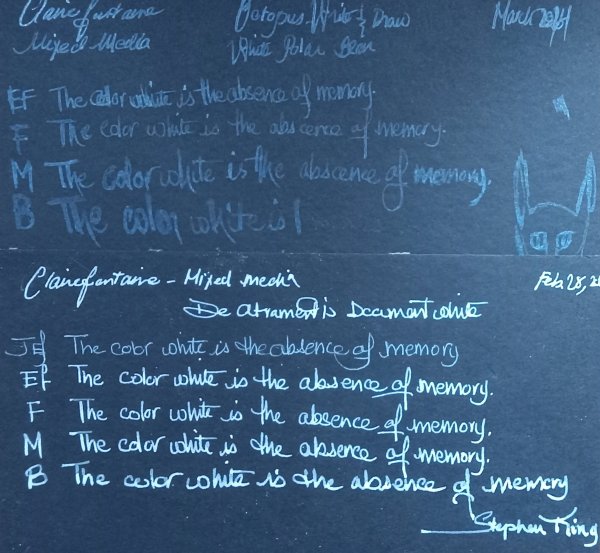 Clairefontaine Octopus Write & Draw March
Mixed Media White Polar Bear
EF The color white is the absence of memory.
F The color white is the abscence of memory.
M The color white is the abscence of memory.
B The color white is
Clairefontaine - Mixed media Feb. 28,
De Atramentis Document white
JEf The color white is the absence of memory
Ef The color white is the absence of memory.
F The color white is the absence of memory.
M The color white is the absence of memory.
B The color white is the absence of memory
Stephen King